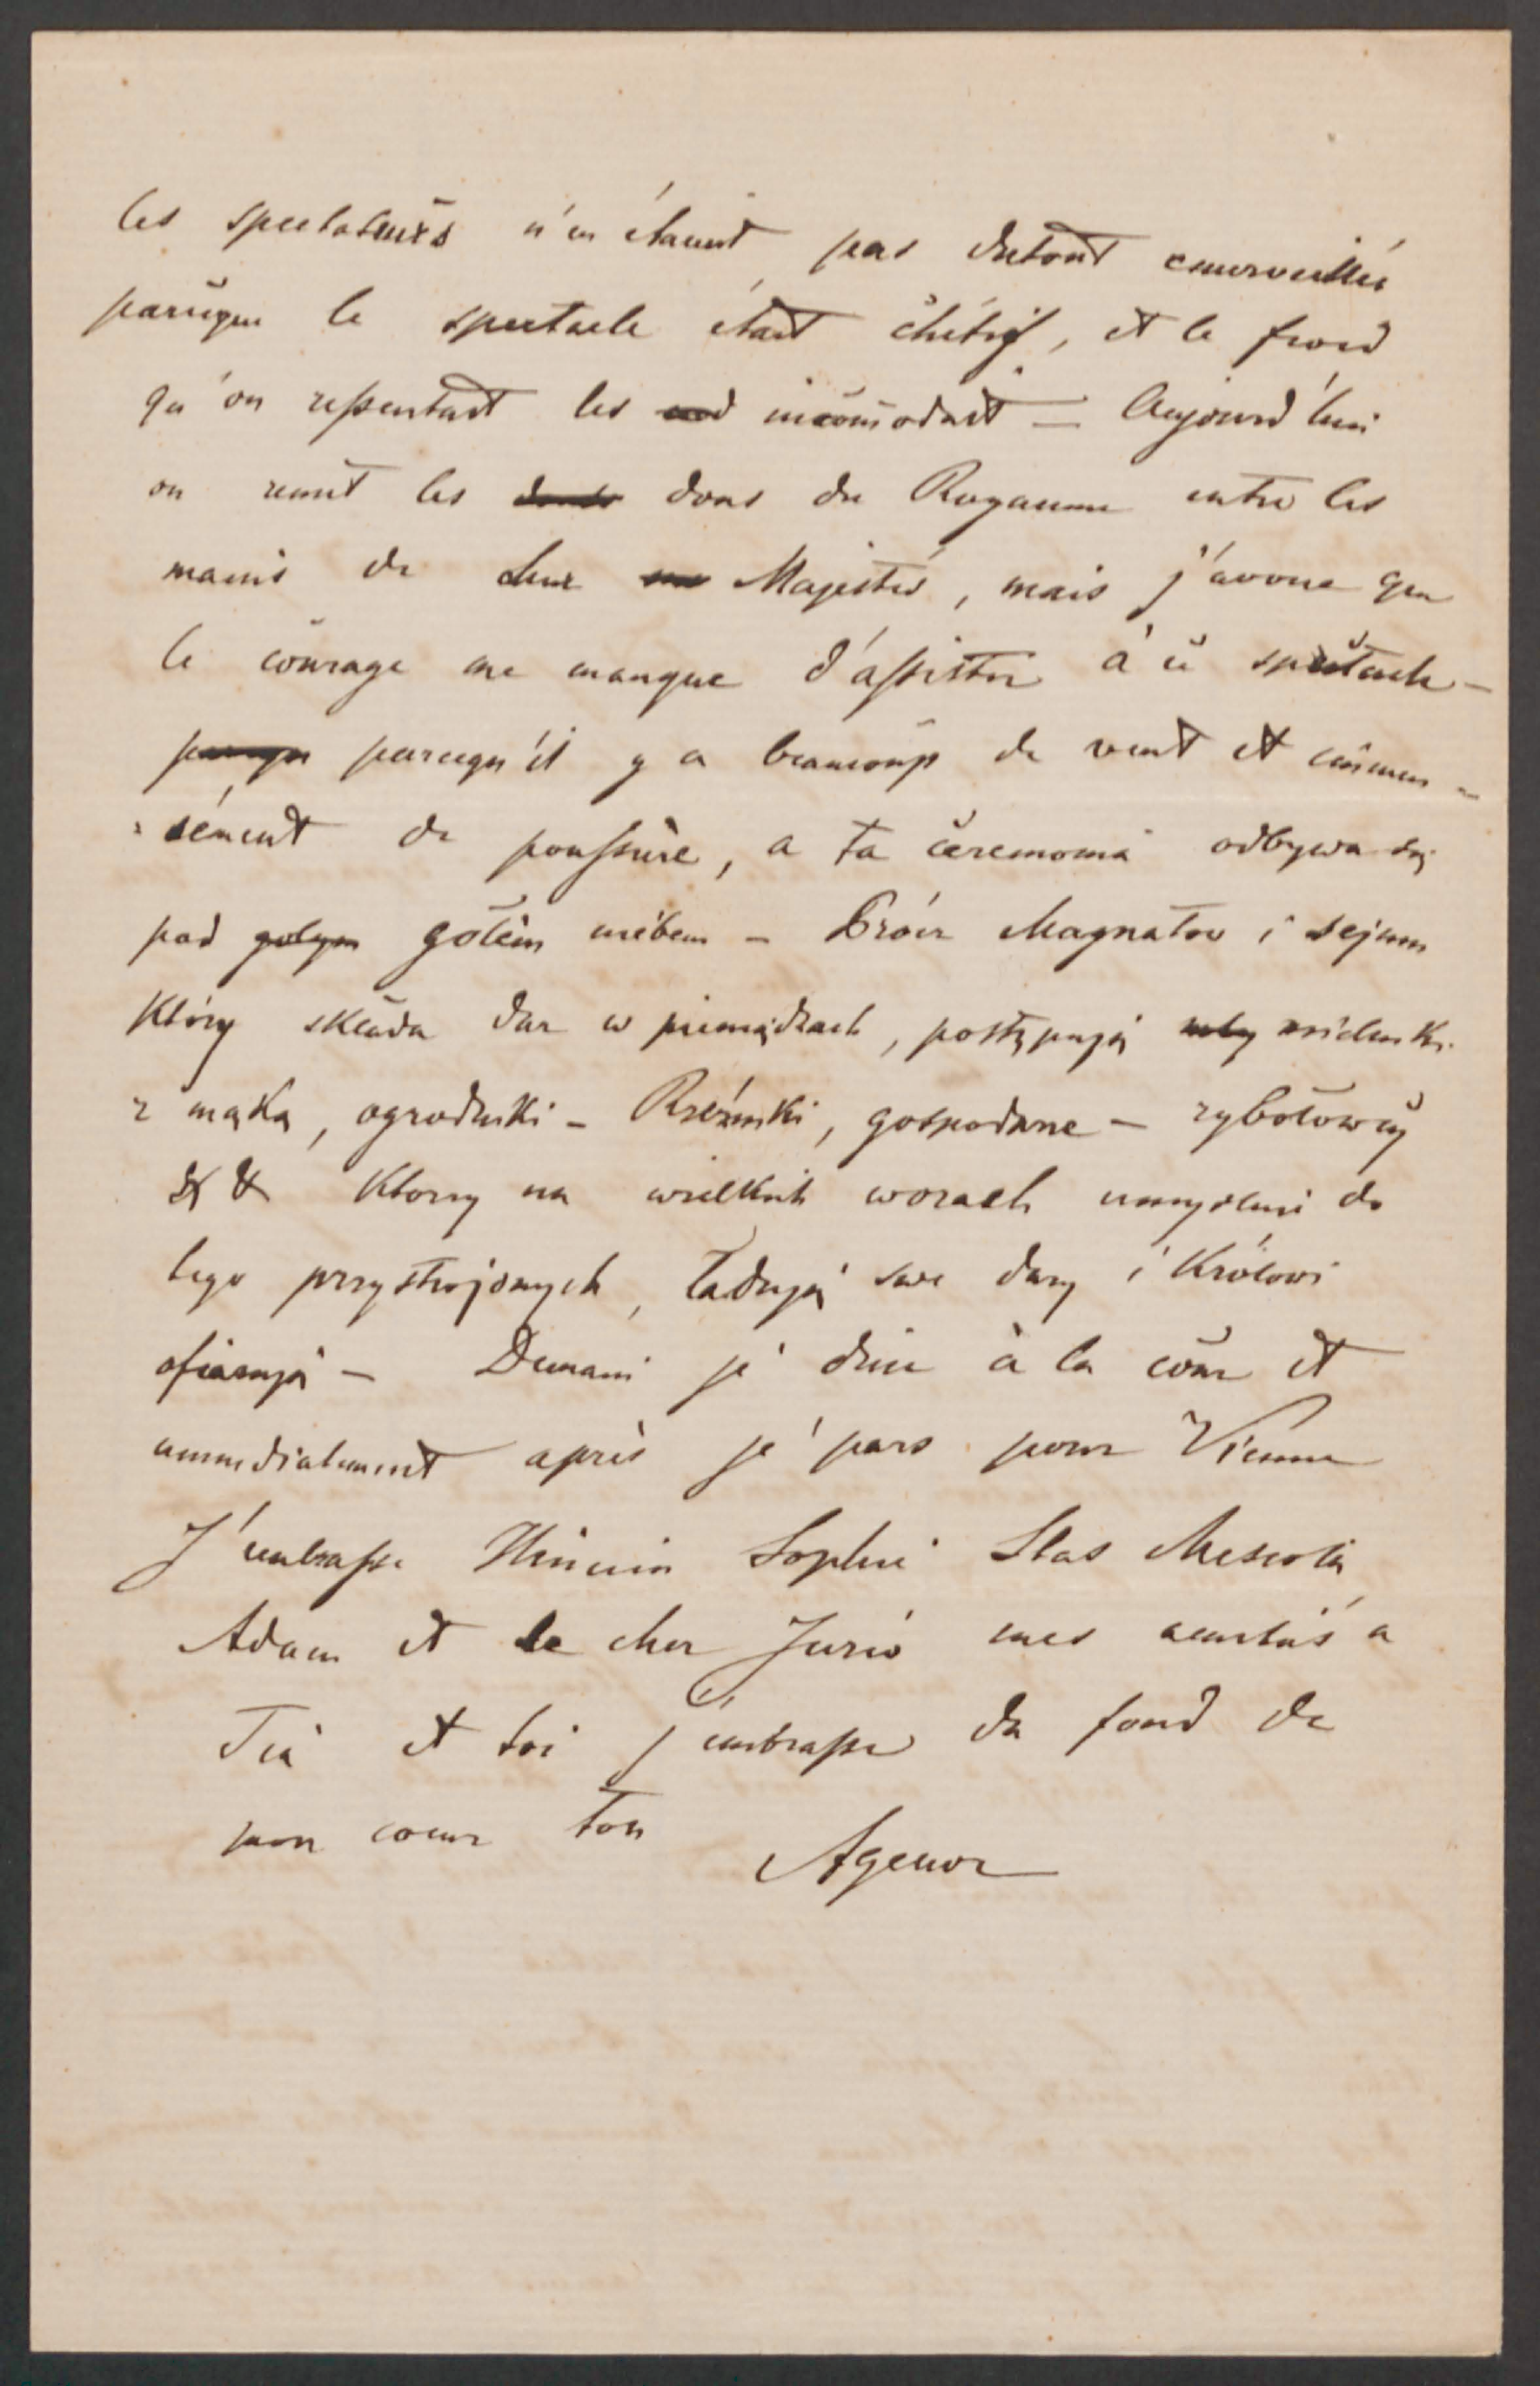 les spectateurs n'en étaient pas du tout emerveillés
parceque le spectacle était chétif, et le froid
qu'on ressentait les incomodait — Aujourd'hui
on remet les dons du Royaume entre les
mains de Leur Majestés, mais j'avoue que
le courage me manque d'assister à ce spectacle —
parcequ'il y a beaucoup de vent et immen-
sément de poussière, a ta ceremonia odbywa się
pod gołym gołem niebem — Prócz Magnatów i sejmu
który składa dar w pieniądzach, postępują
z mąką, ogrodniki — Rzeźniki, gospodarze — rybołowcy
&& Ktorzy na wielkich wozach umyslnie do
tego przystrojonych, ładują swe dary i Królowi
ofiarują — Demain je dine à la cour et
immediatement après je pars pour Vienne
J'embrasse Sophie Stas
Adam et le cher Jurio mes amitiés a
Tia et toi j'embrasse du fond de
mon coeur ton
Agenor